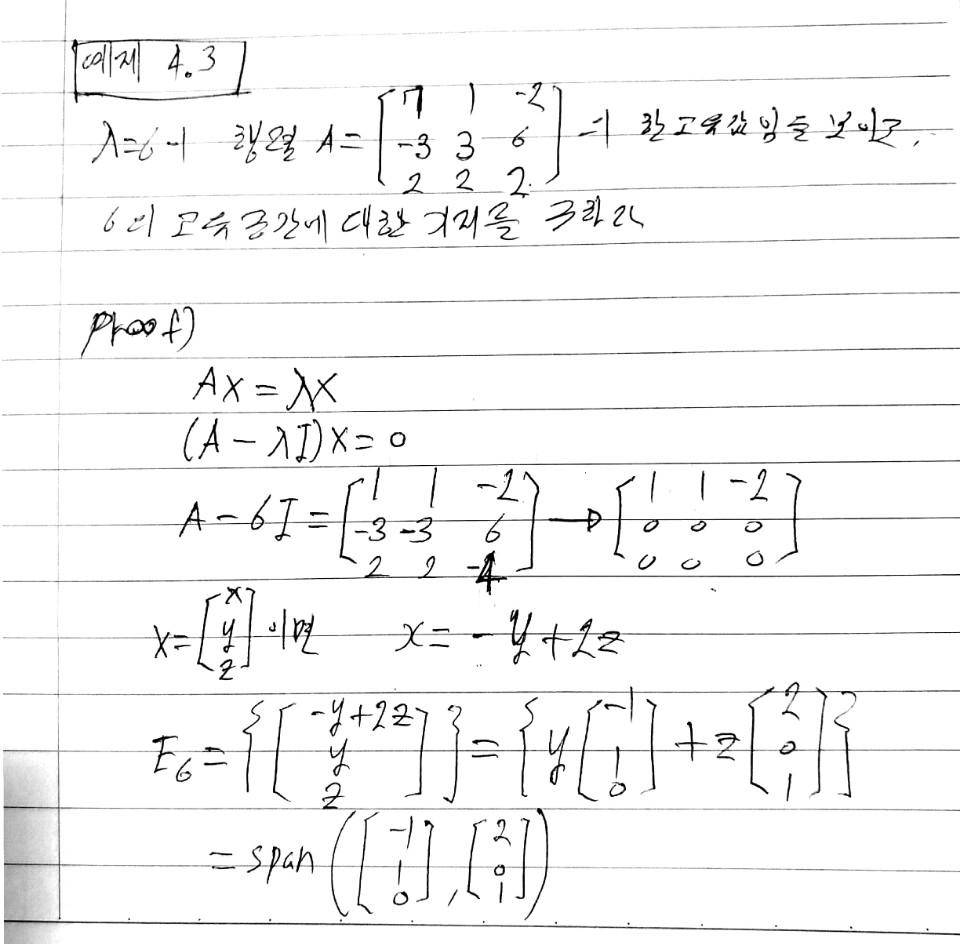 예제 4.3
λ=6이 행렬 A = [7 1 -2; -3 3 6; 2 2 2] 의 한 고유값임을 보이고,
6의 고유공간에 대한 기저를 구하라
proof)
AX = λX
(A - λI)X = 0
A - 6I = [1 1 -2; -3 -3 6; 2 2 -4] → [1 1 -2; 0 0 0; 0 0 0]
X = [x; y; z] 이면 x = -y + 2z
E₆ = {[-y+2z; y; z]} = {y[-1; 1; 0] + z[2; 0; 1]}
= span([-1; 1; 0], [2; 0; 1])